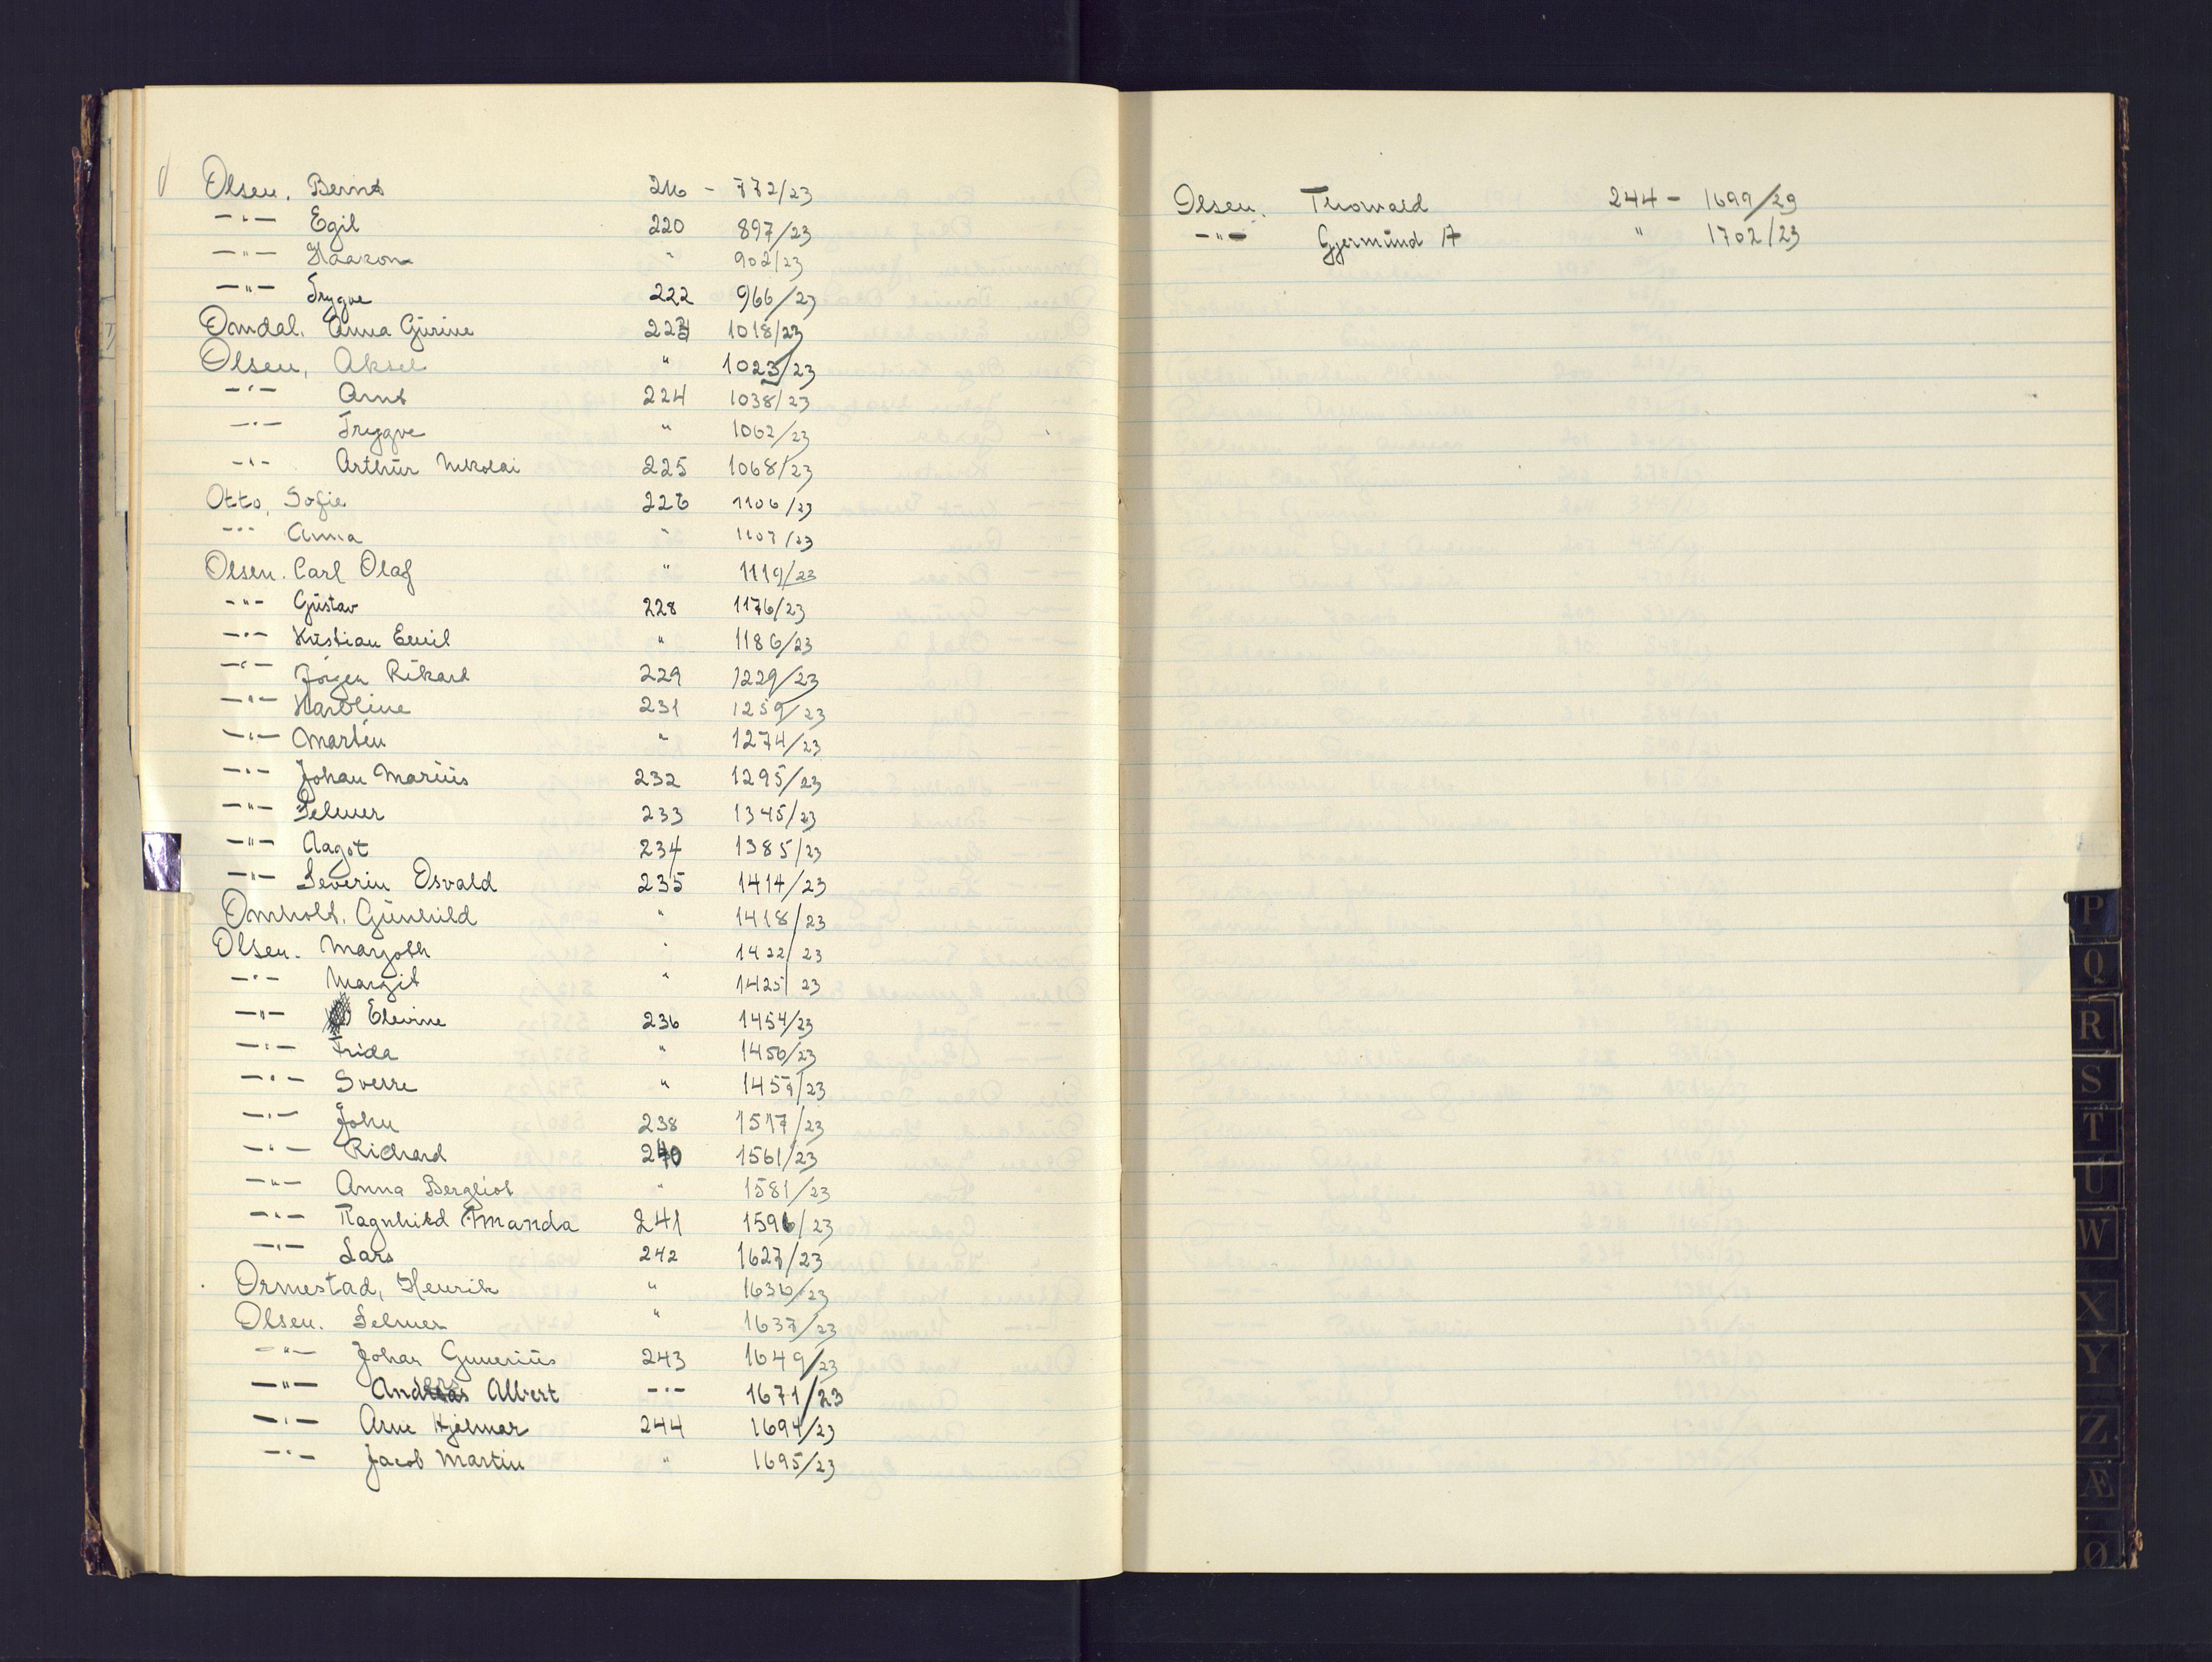 Olsen. Bernt 216 - 772/23
-"- Egil 220 897/23
-"- Haakon " 902/23
-"- Trygve 222 966/23
Omdal. Anna Gurine 223 1018/23
Olsen, Aksel " 1023/23
-"- Arnt 224 1038/23
-"- Trygve " 1062/23
-"- Arthur Nikolai 225 1068/23
Otto, Sofie 226 1106/23
-"- Anna " 1107/23
Olsen. Carl Olaf " 1119/23
-"- Gustav 228 1176/23
-"- Kristian Emil " 1186/23
-"- Jörgen Rikard 229 1229/23
-"- Karoline 231 1259/23
-"- Martin " 1274/23
-"- Johan Marius 232 1295/23
-"- Selmer 233 1345/23
-"- Aagot 234 1385/23
-"- Severin Osvald 235 1414/23
Omholt. Gunhild " 1418/23
Olsen. Margoth " 1422/23
-"- Margit " 1425/23
-"- Elevine 236 1454/23
-"- Frida " 1456/23
-"- Sverre " 1457/23
-"- John 238 1517/23
-"- Richard 240 1561/23
-"- Anna Bergliot " 1581/23
-"- Ragnhild Amanda 241 1596/23
-"- Lars 242 1627/23
Ormestad, Henrik " 1636/23
Olsen. Selmer " 1637/23
-"- Johan Gunerius 243 1649/23
-"- Anders Albert -"- 1671/23
-"- Arne Hjalmar 244 1694/23
-"- Jacob Martin " 1695/23
Olsen. Thorvald 244 - 1699/23
-"- Gjermund A " 1702/23
P
Q
R
S
T
U
W
X
Y
Z
Æ
Ø